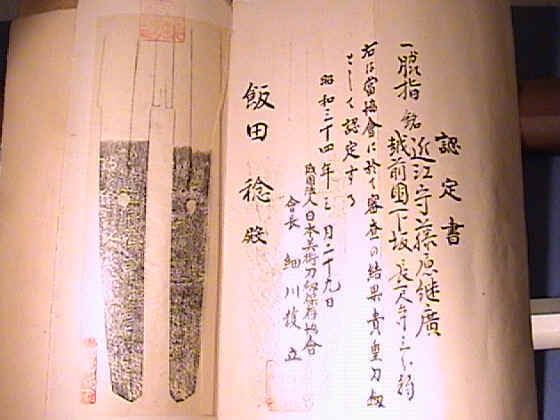 認定書
一脇指 銘 近江守藤原継廣
越前國下坂 長
右は當協會に於て審査の結果貴重刀剣
として認定する
昭和三十四年三月二十九日
財団法人日本美術刀剣保存協会
会長 細川護立
飯田 稔 殿